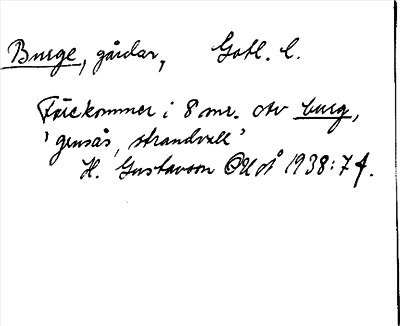 Burge, gårdar, Gotl. l.
Förekommer i 8 snr. av burg,
'grusås, strandvall'
H. Gustavson ÖUoÅ 1938:7f.